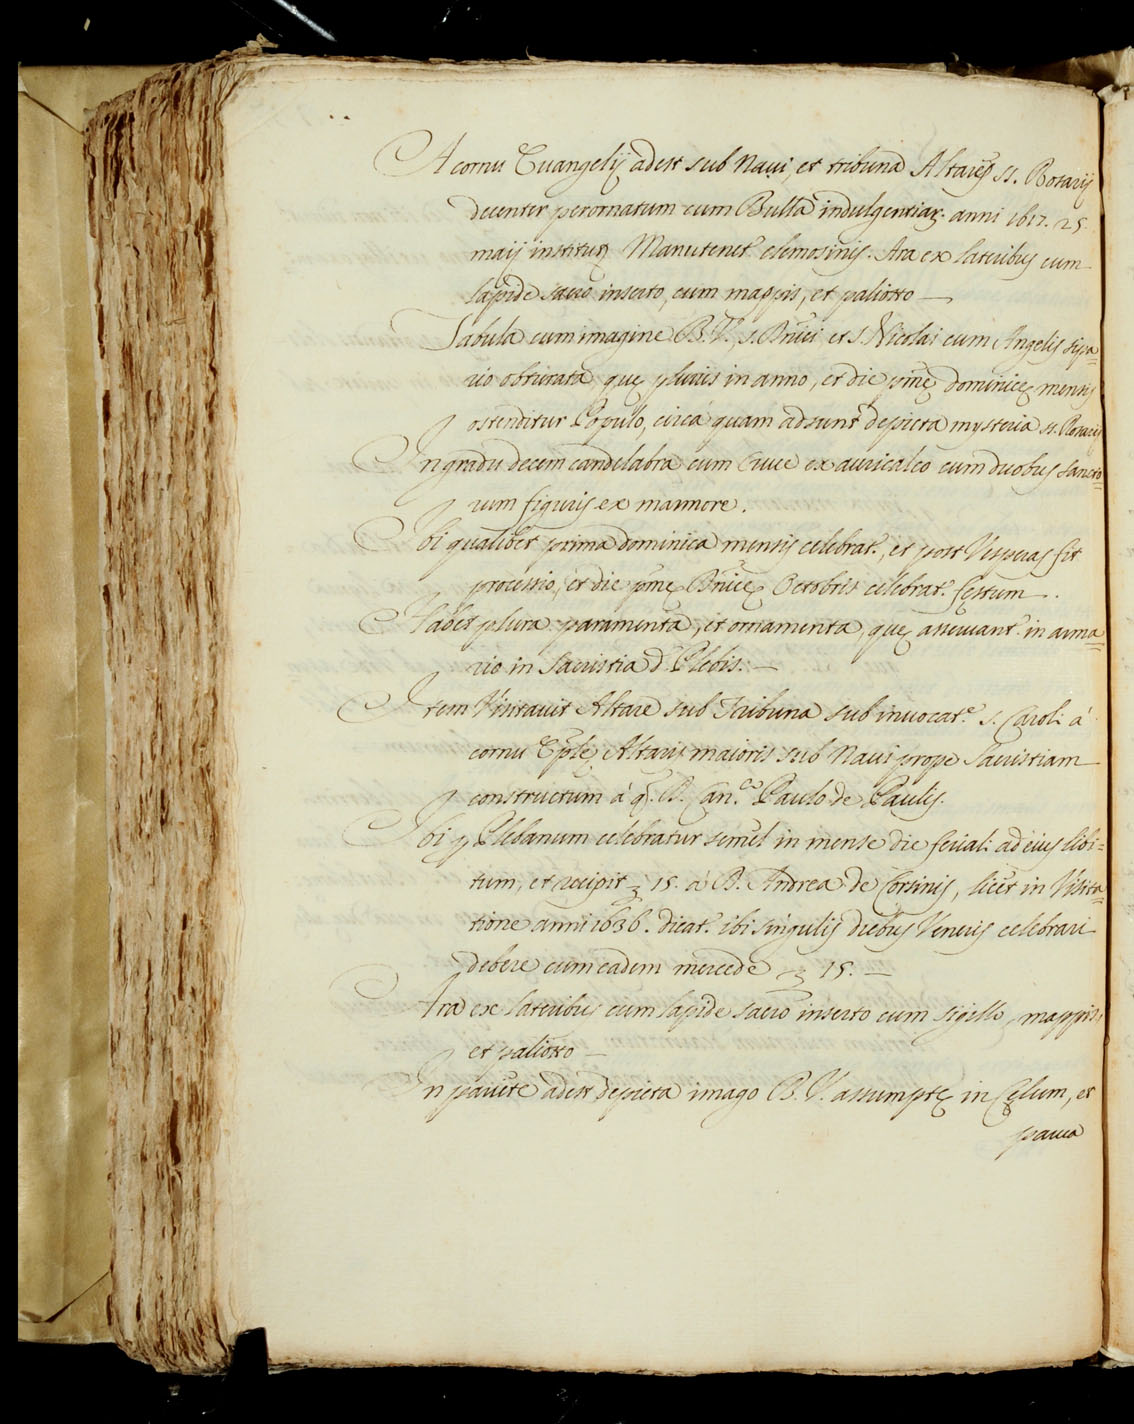 A cornu Euangelij adest sub Naui, et tribuna Altare ss. Rosarij
decenter perornatum cum Bulla indulgentiar. anni 1617. 25.
maij institut. Manutenet.r elemosinis. Ara ex lateribus cum
lapide sacro inserto, cum mappis, et paliotto —
Tabula cum imagine B. V., s. Bnici et S. Nicolai cum Angelis sipa=
rio obturata, quę pluries in anno, et die pme dominicę mensis
ostenditur Populo, circá quam adsunt depicta mysteria ss. Rosarij
In gradu decem candelabra cum Cruce ex auricalco cum duobus sancto=
rum figuris ex marmore.
Ibi qualibet prima dominica mensis celebrat.r, et post Vesperas fit
processio, et die pme Dnicę Octobris celebrat.r festum —.
Habet plura paramenta, et ornamenta, quę asseruant.r in arma=
rio in Sacristia d. Plebis. —
Item Visitauit Altare sub Tribuna sub inuocat.e s. Caroli á
cornu Eplę Altaris maioris sub Naui prope Sacristiam
constructum á q. D. Can.co Paulo de Paulis.
Ibi p Plebanum celebratur semel in mense die feriali ad eius libi=
tum, et recipit 15. á D. Andrea de Corsinis, licet in Visita=
tione anni 1636. dicat.r ibi singulis diebus Veneris celebrari
debere cum eadem mercede 15. —
Ara ex lateribus cum lapide sacro inserto cum sigillo, mappis,
et paliotto —
In pariete adest depicta imago B. V. assumptę in Cęlum, et
parua